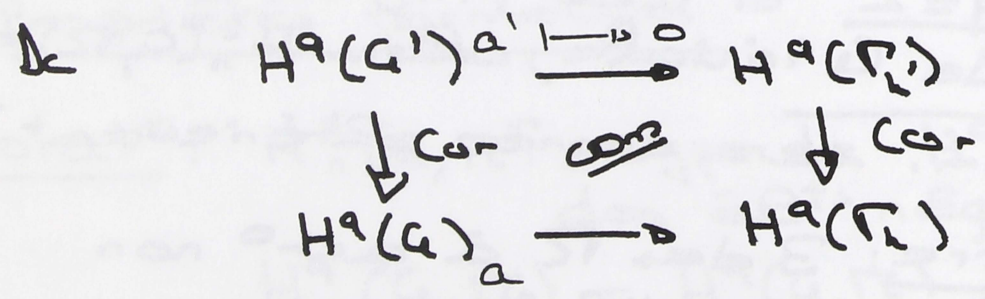 Dc H^q(G') a' ↦ 0 H^q(Γ_k')
↓ Cor com ↓ Cor
H^q(G) a → H^q(Γ_k)